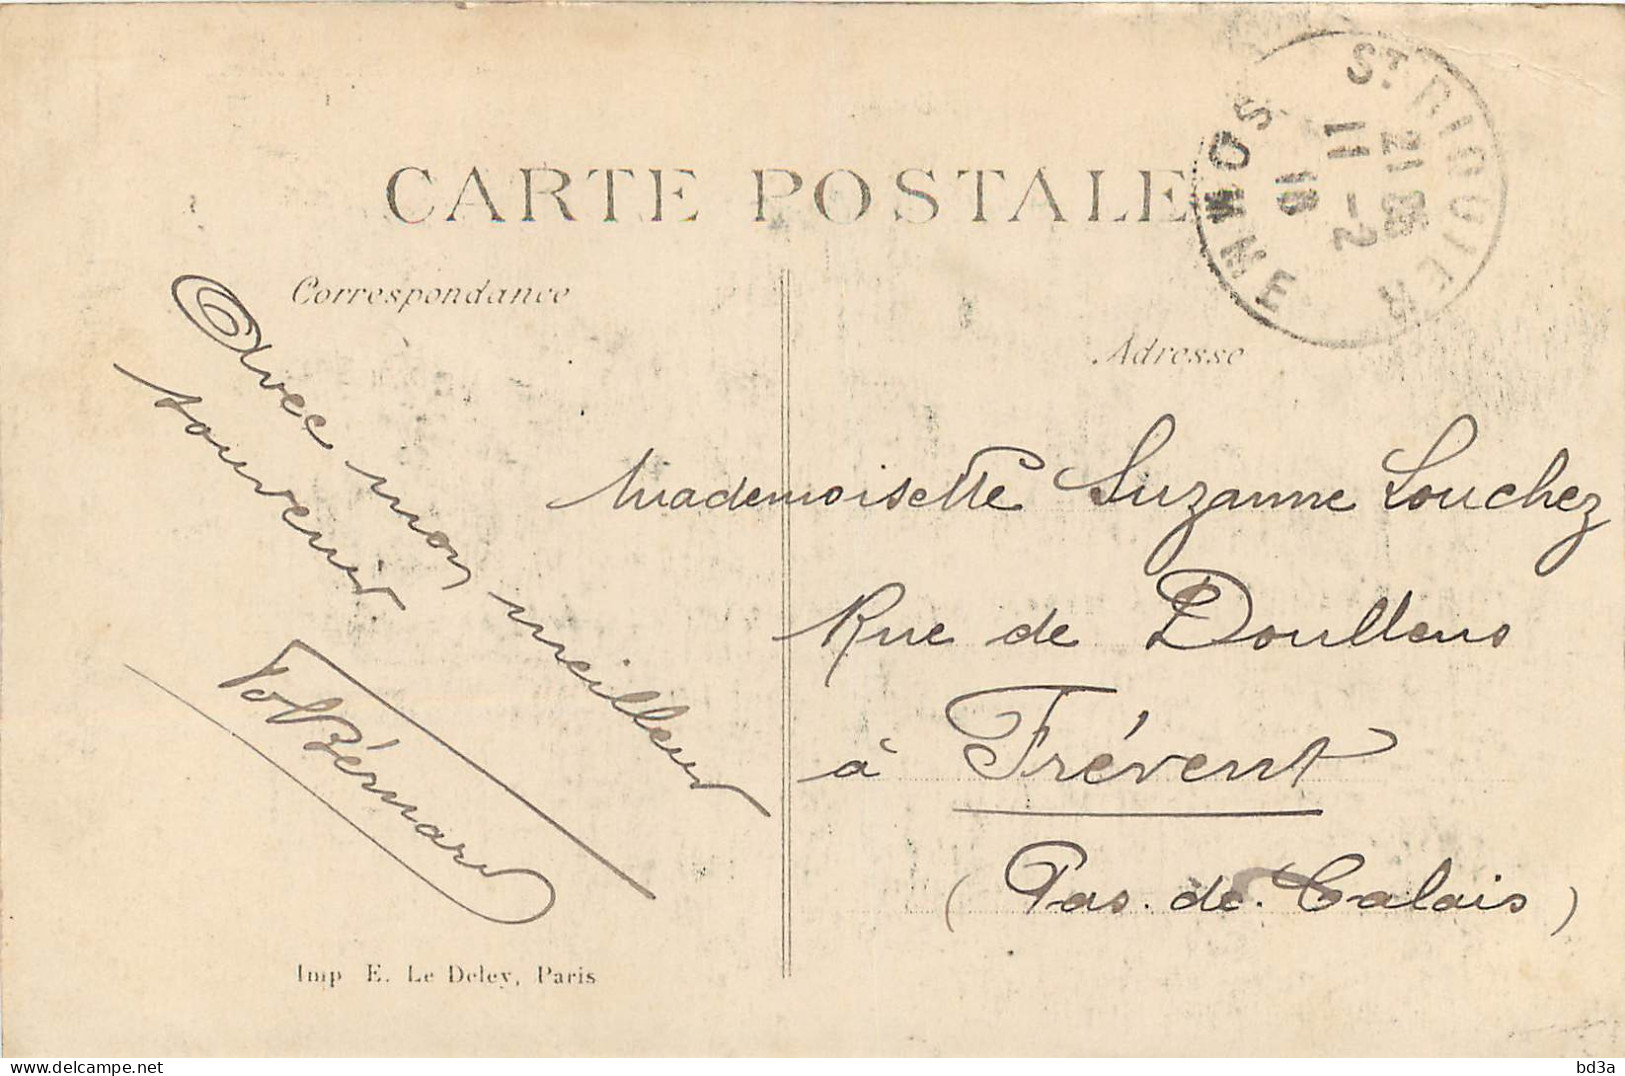 CARTE POSTALE
Correspondance
Adresse
ST RIQUIER
11 -2
SOMME
Avec mon meilleur
souvenir
Bernard
Mademoiselle Suzanne Louchez
Rue de Doullens
à Frévent
(Pas. de. Calais)
Imp E. Le Deley, Paris
delcampe.net
bd3a